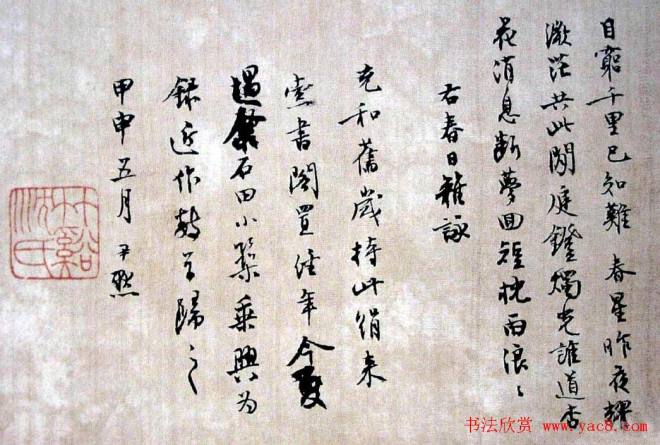 目窮千里已知難 春星昨夜耀
微茫共此閒庭鐙燭光誰道杏
花消息斷夢回短枕雨浪〻
右春日雜詠
充和舊歲持此絹來
索書閣置經年今夏
過餐石田小築乗興为
録近作数首歸之
甲申五月 尹默
竹谿沈氏
书法欣赏 www.yac8.com